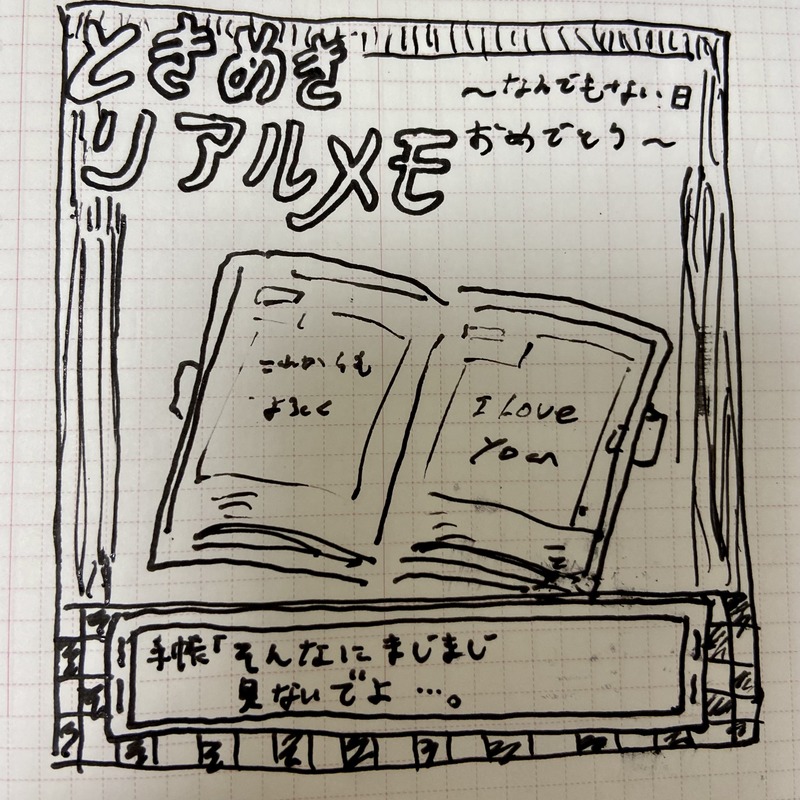 ときめき
リアルメモ
〜なんでもない日
おめでとう〜
これからも
よろしく
I Love
You
手帳「そんなにまじまじ
見ないでよ…。